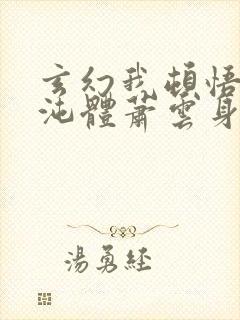 玄幻我頓悟
沌體蕭雲身
湯勇經